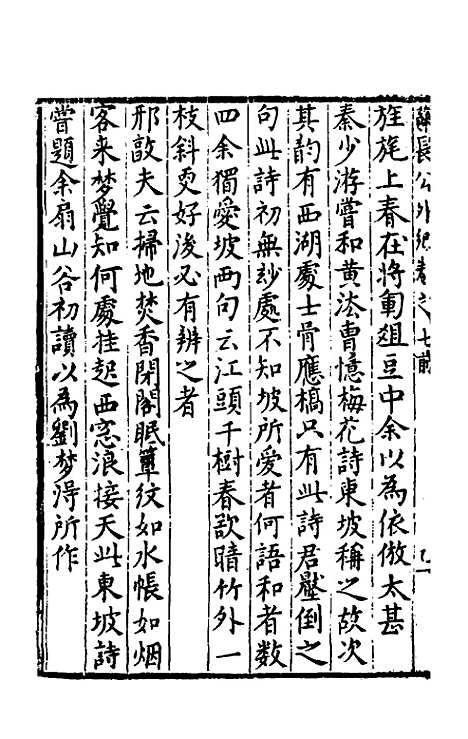 蘇長公外紀卷之七前
旌旄上春在將軍俎豆中余以為依倣太甚
秦少游嘗和黃法曹憶梅花詩東坡稱之故次
其韵有西湖處士骨應槁只有此詩君壓倒之
句此詩初無玅處不知坡所愛者何語和者數
四余獨愛坡两句云江頭千樹春欲暗竹外一
枝斜更好浚必有辨之者
邢敦夫云掃地焚香閉閣眠簟紋如水帳如烟
客来梦覺知何處挂起西窓浪接天此東坡詩
嘗題余扇山谷初讀以為劉梦淂所作